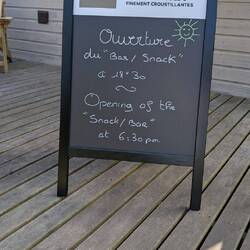 FINEMENT CROUSTILLANTES
Ouverture
du "Bar / Snack"
à 18h30
Opening of the
"Snack/Bar"
at 6:30pm